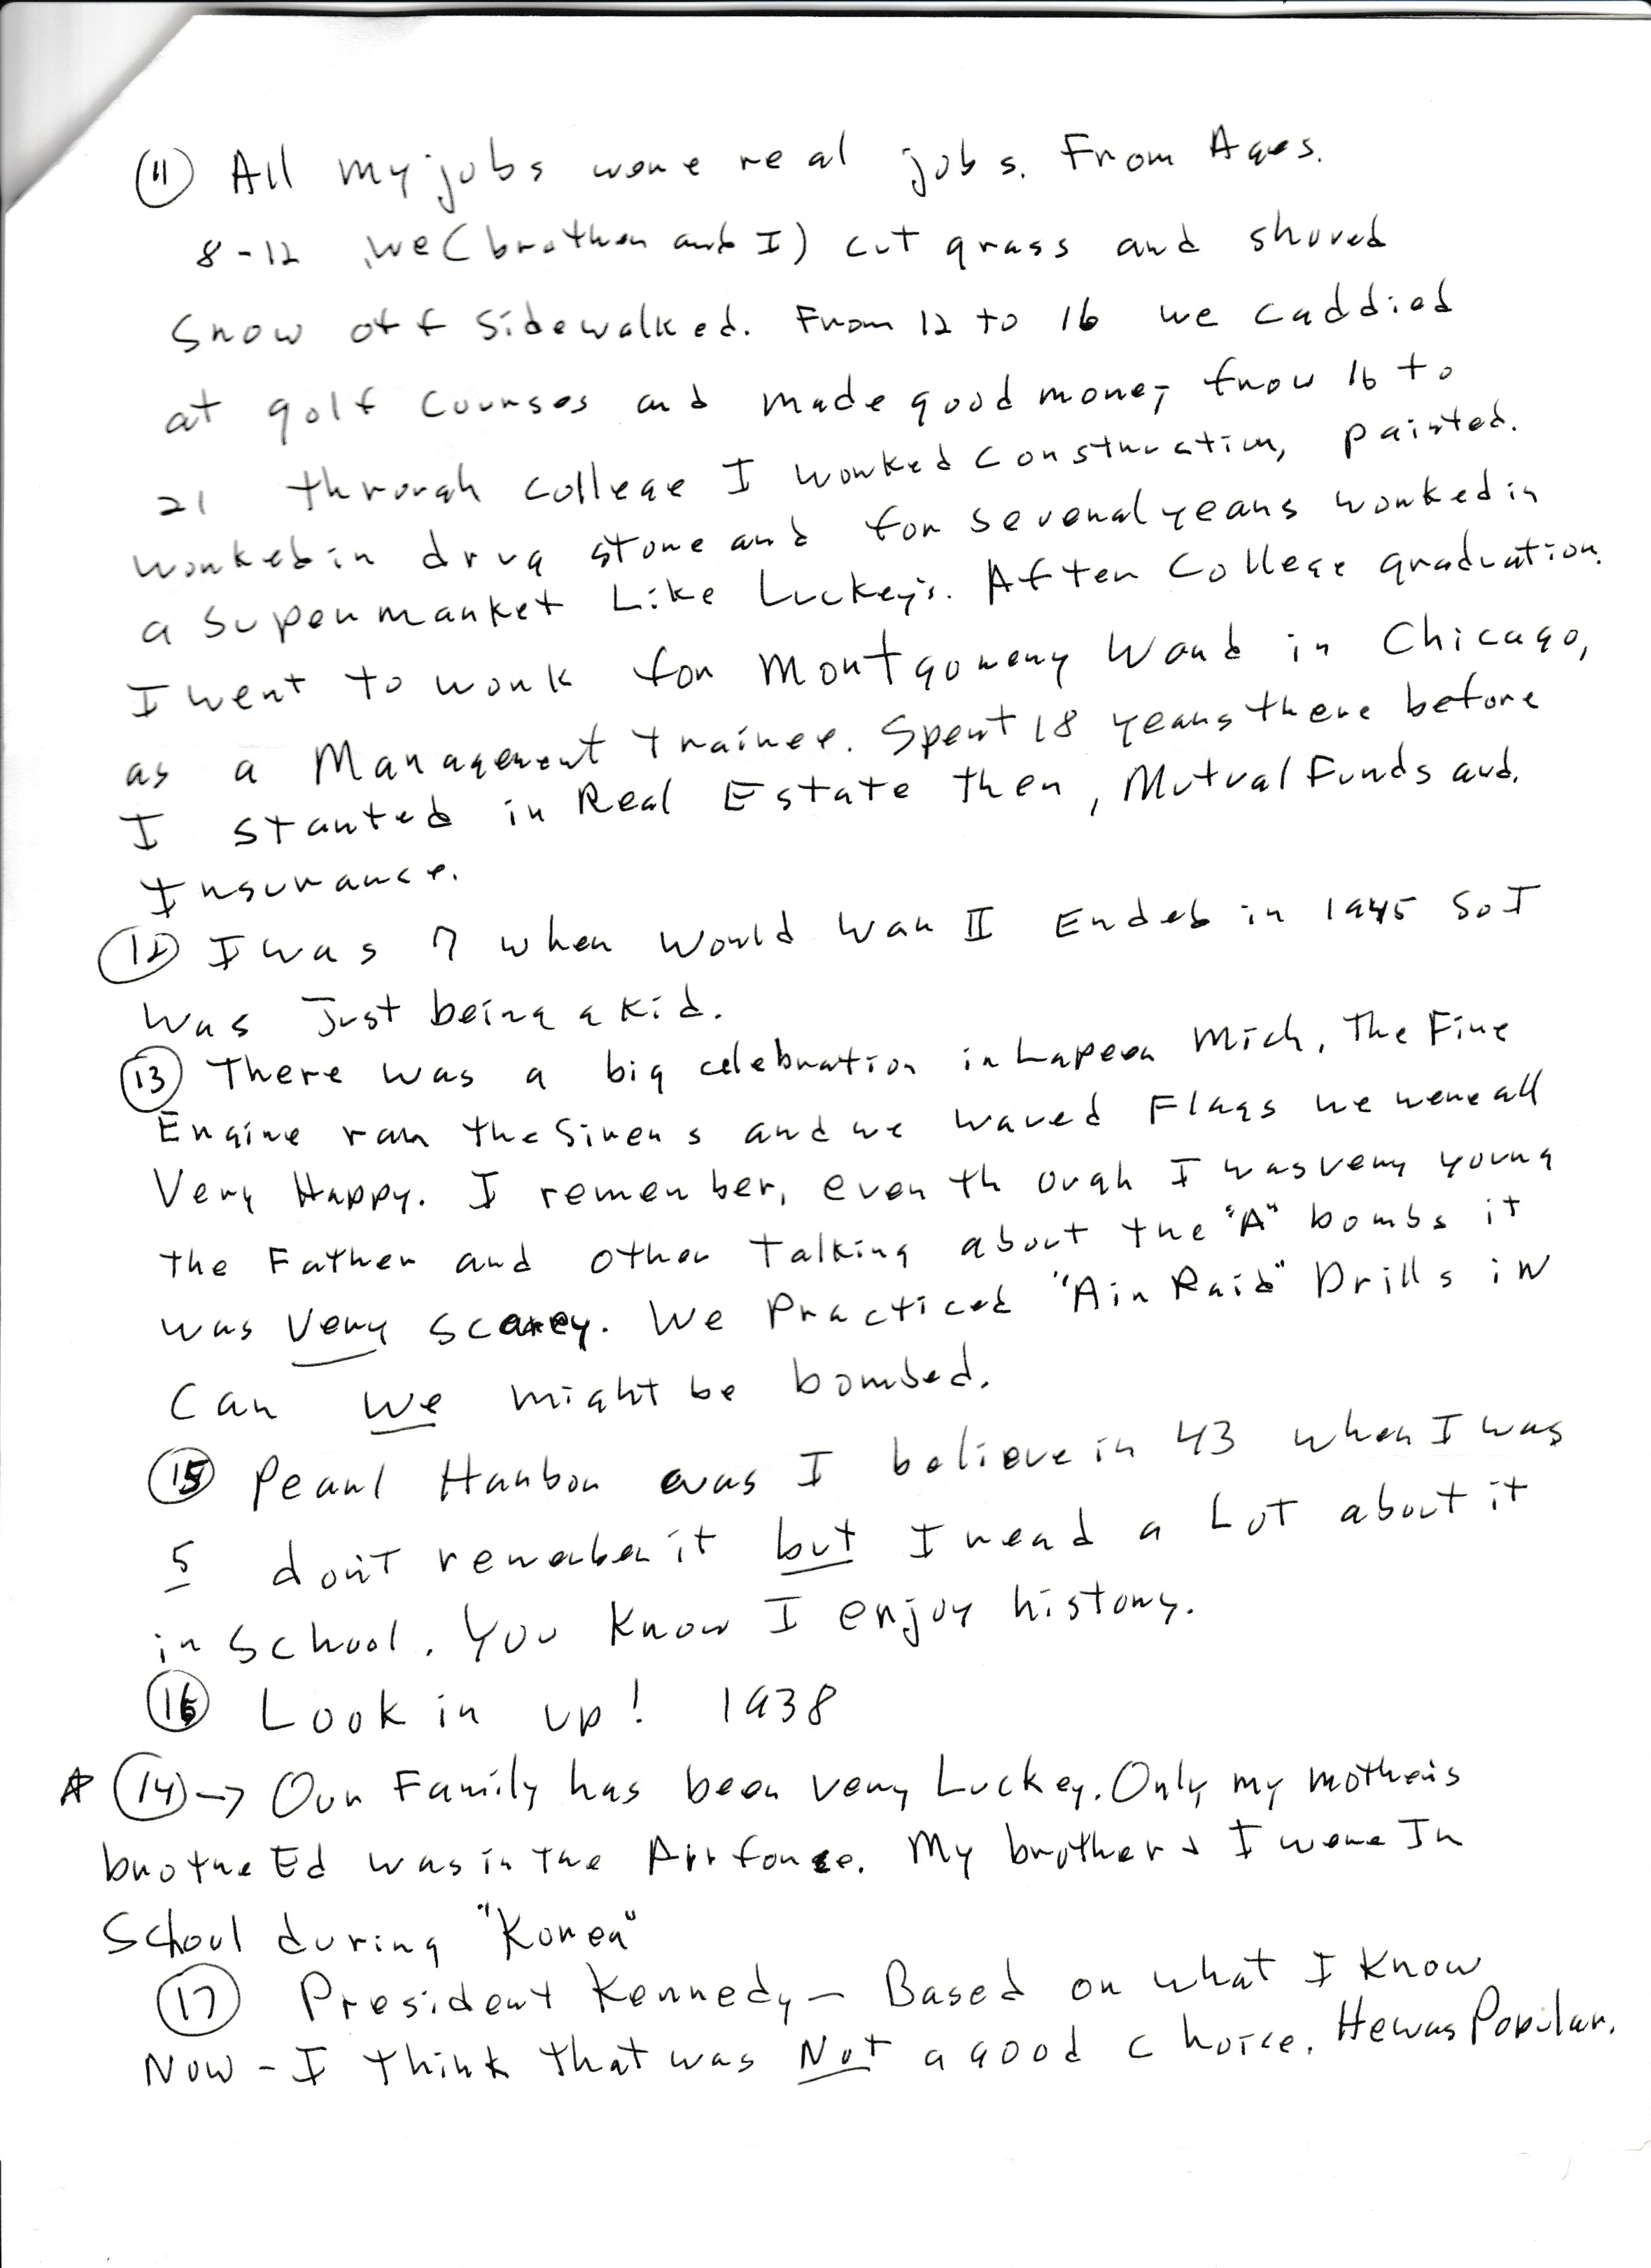 (11) All my jobs were real jobs. From Ages.
8-12 we (brother and I) cut grass and shoved
Snow off Sidewalked. From 12 to 16 we caddied
at golf courses and made good money from 16 to
21 through college I worked construction, painted.
worked in drug store and for several years worked in
a Supermarket Like Luckey's. After College graduation.
I went to work for Montgomery Ward in Chicago,
as a Management trainee. Spent 18 years there before
I started in Real Estate then, Mutual Funds and.
Insurance.
(12) I was 7 when World War II Ended in 1945 So I
was Just being a kid.
(13) There was a big celebration in Lapeer Mich. The Fire
Engine ran the Sirens and we waved Flags we were all
Very Happy. I remember, even though I was very young
the Father and other Talking about the "A" bombs it
was very scarey. We Practiced "Air Raid" Drills in
Can we might be bombed.
(15) Pearl Harbor was I believe in 43 when I was
5 don't remember it but I read a Lot about it
in School. You Know I enjoy history.
(16) Look in up! 1938
* (14) → Our Family has been very Luckey. Only my mother's
brothe Ed was in the Air force. My brother + I were In
School during "Korea"
(17) President Kennedy - Based on what I Know
Now - I think that was Not a good choice. He was Popular.